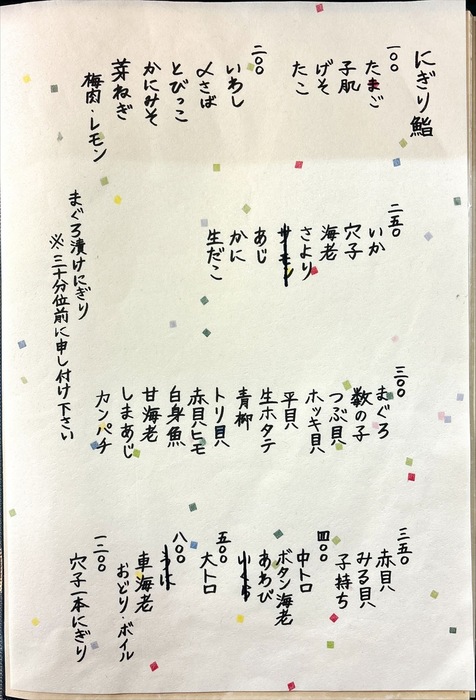 にぎり鮨
一〇〇
たまご
子肌
げそ
たこ
二〇〇
いわし
〆さば
とびっこ
かにみそ
芽ねぎ
梅肉・レモン
二五〇
いか
穴子
海老
さより
サーモン
あじ
かに
生だこ
まぐろ漬けにぎり
※三十分位前に申し付け下さい
三〇〇
まぐろ
数の子
つぶ貝
ホッキ貝
平貝
生ホタテ
青柳
トリ貝
赤貝ヒモ
白身魚
甘海老
しまあじ
カンパチ
三五〇
赤貝
みる貝
子持ち
四〇〇
中トロ
ボタン海老
あわび
いくら
五〇〇
大トロ
八〇〇
うに
車海老
おどり・ボイル
一二〇〇
穴子一本にぎり